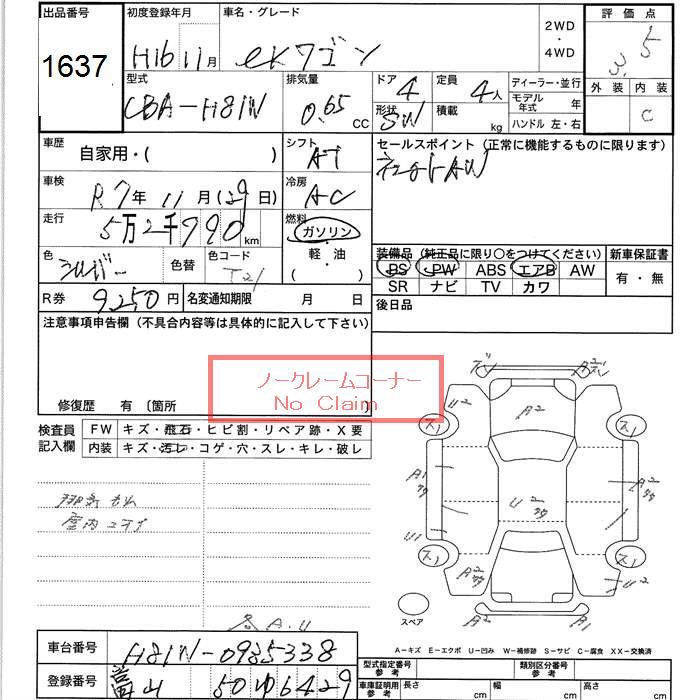 出品番号
1637
初度登録年月
H16 11月
車名・グレード
eKワゴン
2WD
・
4WD
評価点
3.5
外装 内装
C
型式
CBA-H81W
排気量
0.65 CC
ドア 4
形状 SW
定員 4人
積載 kg
ディーラー・並行
モデル年式 年
ハンドル 左・右
車歴
自家用・( )
シフト
AT
セールスポイント(正常に機能するものに限ります)
車検
R7年 11月(29日)
冷房
AC
走行
5万2千990km
燃料
ガソリン
軽・油
( )
色
シルバー
色替
色コード
T21
装備品 (純正品に限り○をつけてください)
PS PW ABS エアB AW
SR ナビ TV カワ
新車保証書
有・無
R券 9250円
名変通知期限 月 日
後日品
注意事項申告欄 (不具合内容等は具体的に記入して下さい)
ノークレームコーナー
No Claim
修復歴 有 〔箇所
検査員記入欄
FW キズ・飛石・ヒビ割・リペア跡・X要
内装 キズ・汚レ・コゲ・穴・スレ・キレ・破レ
室内
各A.U
A2
U2
A2
ス1
ス1
A1
A2
U2
U1
ス1
ス1
A2
A2
U2
A2
A1
スペア
A-キズ E-エクボ U-凹み W-補修跡 S-サビ C-腐食 XX-交換済
車台番号 H81W-0985338
登録番号 富山 50ゆ6429
型式指定番号 参考
類別区分番号 参考
車庫証明用 参考 長さ cm 幅 cm 高さ cm